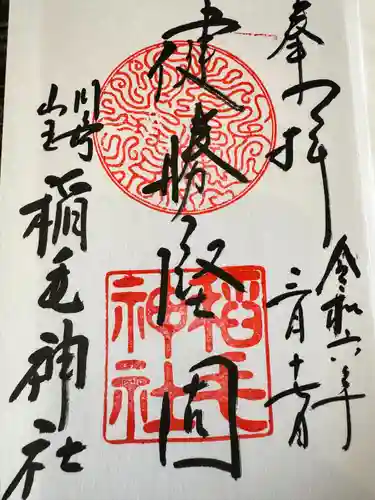 奉拝
令和六年
三月十七日
健勝隆
川崎
山王
稲毛神社
稲毛
神社